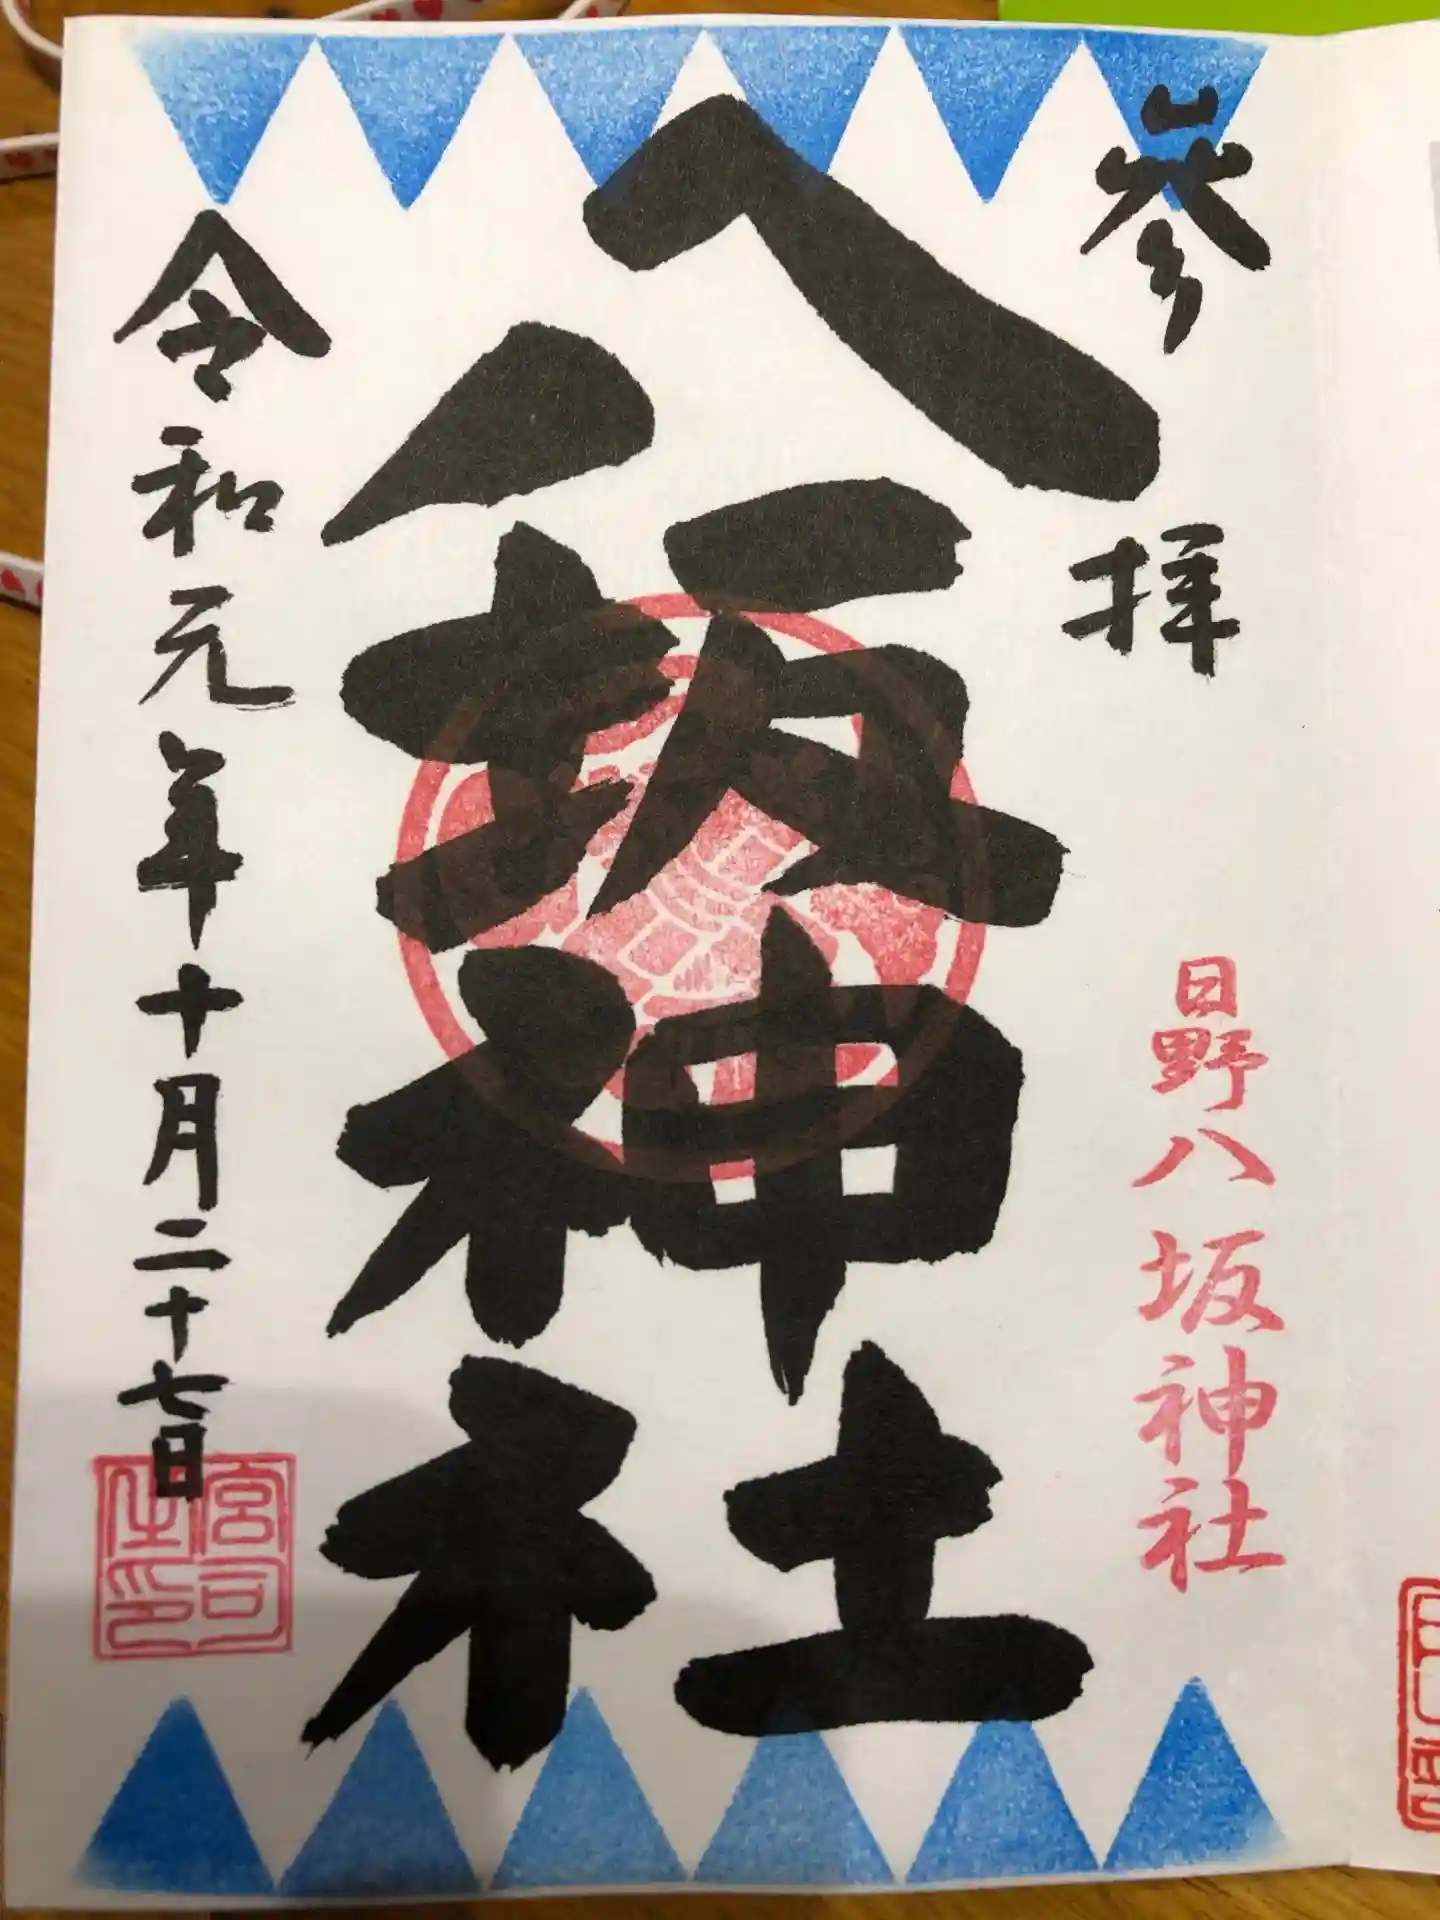 参拝
日野八坂神社
八坂神社
令和元年十月二十七日
宮司之印